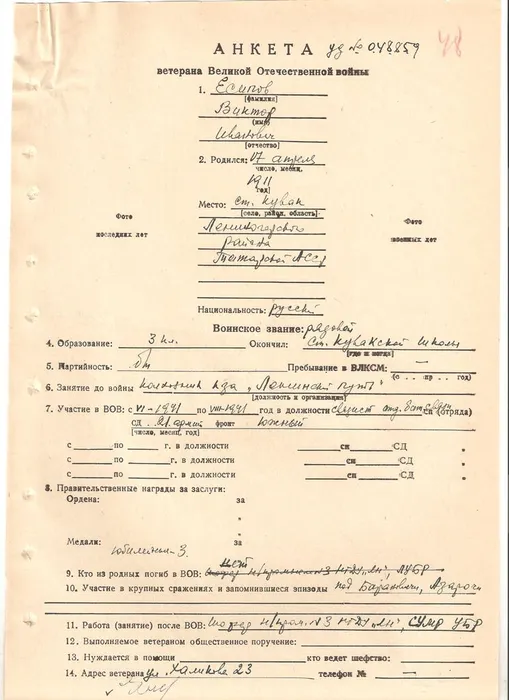 АНКЕТА уд № 048859 48
ветерана Великой Отечественной войны
1. Есипов
[фамилия]
Виктор
(имя)
Иванович
[отчество]
2. Родился: 17 апреля
число, месяц,
1911
год)
Место: ст. Кувак
[село, район, область]
Лениногорского
района
Татарской АССР
Фото
последних лет
Фото
военных лет
Национальность: русский
Воинское звание: рядовой
4. Образование: 3 кл. Окончил: Ст. Кувакской школы
(где и когда)
5. Партийность: бп Пребывание в ВЛКСМ: —
(с . . . пр . . . год)
6. Занятие до войны колхозник кза „Ленинский путь"
[должность и организация]
7. Участие в ВОВ: с VI-1941 по VIII-1941 год в должности связист отд. бат. связи сп (отряда)
сд 21 армий фронт Южный
[число, месяц, год)
с по г. в должности сп СД "
с по г. в должности сп СД "
с по г. в должности сп СД "
8. Правительственные награды за заслуги:
Ордена: за
"
"
Медали: за
Юбилейн. 3
нет
9. Кто из родных погиб в ВОВ:
10. Участие в крупных сражениях и запомнившиеся эпизоды под
11. Работа (занятие) после ВОВ: №3 НГДУ „ЛН",
12. Выполняемое ветераном общественное поручение:
13. Нуждается в помощи кто ведет шефство:
14. Адрес ветерана ул. Халикова 23 телефон № —